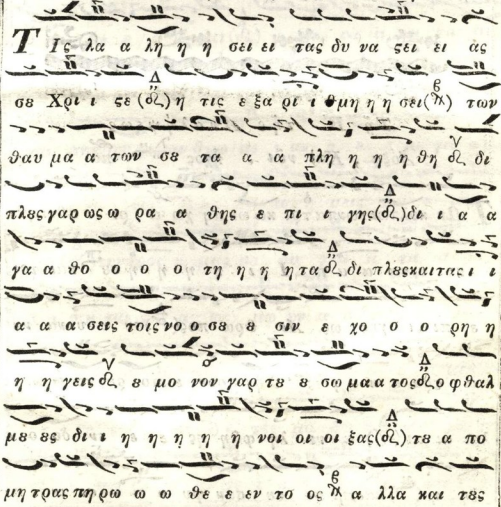 Τις λα α λη η η σει ει τας δυ να ςει ει ας
σȣ Χρι ι ςε (δι) η τις ε ξα ρι ι θμη η η σει( ) των
θαυ μα α των σȣ τα α α πλη η η η θη δι
πλȣς γαρ ως ω ρα α θης ε πι ι γης( )δι ι α α
γα α θο ο ο ο τη η η η τα δι πλȣς και τας ι ι
α α α σεις τοις νο ο σȣ ȣ σιν ε χο ο ο ρη η
η η γεις ȣ μο νον γαρ τȣ ȣ σω μα α τος ο φθαλ
μȣȣς δι ι η η η η η νοι οι οι ξας( ) τȣ α πο
μη τρας πη ρω ω ω θε ε εν το ος α λλα και τȣς